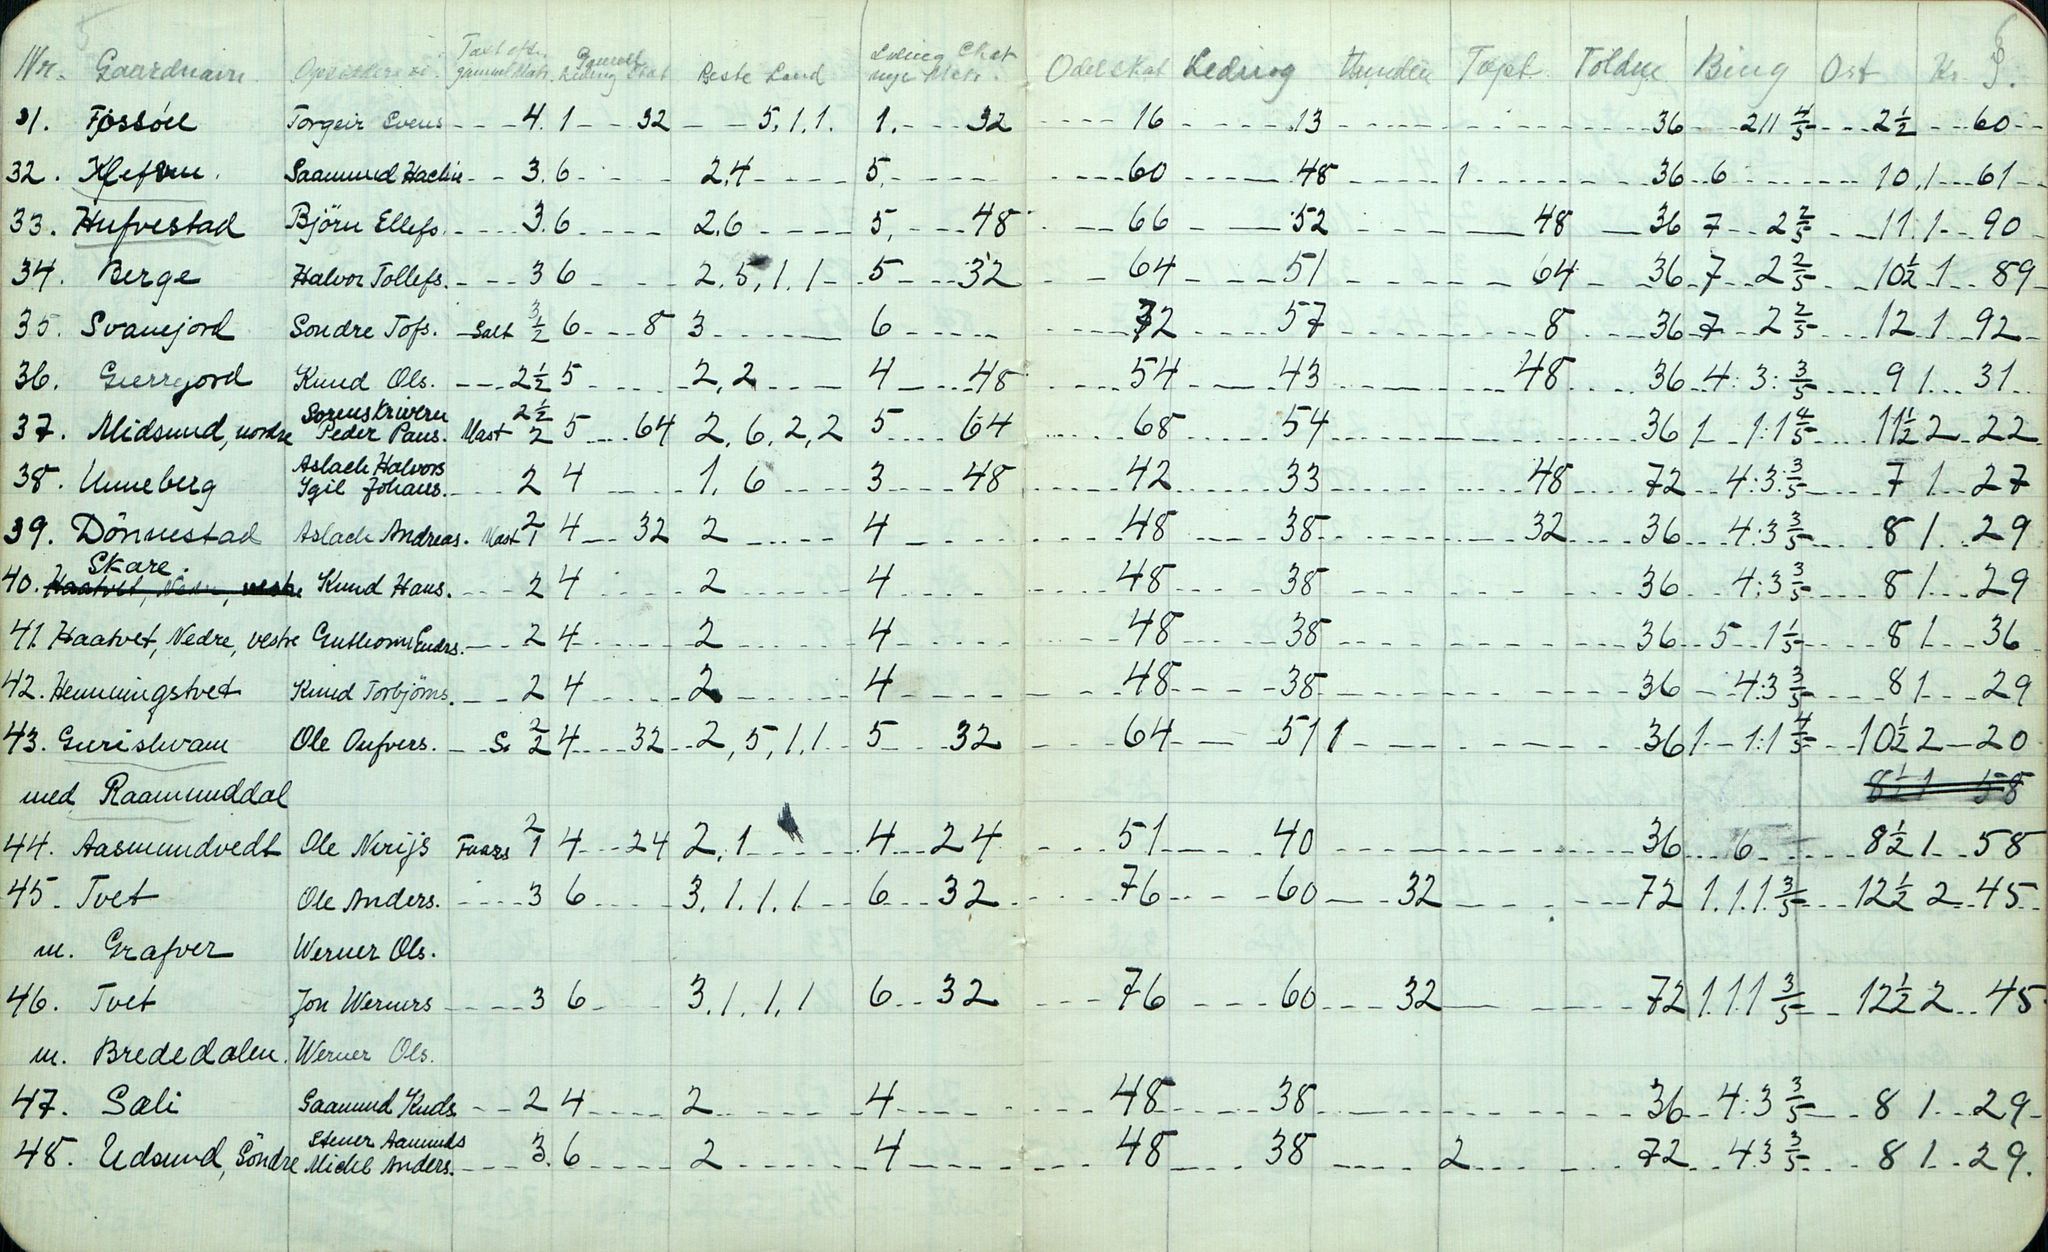 Nr. Gaardnavn. Taxt efter gammel Matr. Gammel Leding Skat Beste Land Leding Skat nye Matr. Odelskat Leding Tapt Toldne Bing Ost Kr. §.
31. Fjossöll Torgeir Svens 4. 1 32 5,1,1. 1. 32 16 13 36 2 11 4/5 2 1/2 60
32. Saamund 3. 6 2,4 5, 60 48 1 36 6 10, 1 61
33. Hufvestad Björn Ellefs. 3. 6 2,6 5, 48 66 52 48 36 7 2 2/5 11. 1 90
34. Berge Halvor Tollefs. 3 6 2,5,1,1 5 32 64 51 64 36 7 2 2/5 10 1/2 1 89
35. Svanejord Sondre Tofs. Salt 3/2 6 8 3 6 72 57 8 36 7 2 2/5 12 1 92
36. Gurrejord Knud Ols. 2 1/2 5 2,2 4 48 54 43 48 36 4:3: 3/5 9 1 31
37. Midsund, nordre Sorenskrivern Peder Paus. Mast 2 1/2 2 5 64 2,6,2,2 5 64 68 54 36 1 1:1 4/5 11 1/2 2 22
38. Unneberg Aslach Halvors Ygil Johans. 2 4 1,6 3 48 42 33 48 72 4:3: 3/5 7 1 27
39. Dönnestad Aslach Andreas. Mast 2/1 4 32 2 4 48 38 32 36 4:3 3/5 8 1 29
Skare.
40. Haatvet, Nedre, vestre Knud Hans. 2 4 2 4 48 38 36 4:3 3/5 8 1 29
41. Haatvet, Nedre, vestre Guthorm Endrs. 2 4 2 4 48 38 36 5 1 1/5 8 1 36
42. Henningstvet Knud Torbjörns. 2 4 2 4 48 38 36 4:3 3/5 8 1 29
43. Ole Oufvers. S. 2/2 4 32 2,5,1,1 5 32 64 51 1 36 1 1:1 4/5 10 1/2 2 20
med Raamunddal 8 1/2 1 58
44. Aasmundvedt Ole Nirijs Faars 2/1 4 24 2,1 4 24 51 40 36 6 8 1/2 1 58
45. Tvet Ole Anders. 3 6 3,1,1,1 6 32 76 60 32 72 1.1.1 3/5 12 1/2 2 45
m. Grafver Werner Ols.
46. Tvet Jon Werners 3 6 3,1,1,1 6 32 76 60 32 72 1.1.1 3/5 12 1/2 2 45
m. Brededalen. Werner Ols.
47. Sæli Saamund Knds 2 4 2 4 48 38 36 4:3 3/5 8 1 29
48. Udsund, Söndre Stener Aamunds Michl Anders. 3. 6 2 4 48 38 2 72 4.3 3/5 8 1 29.